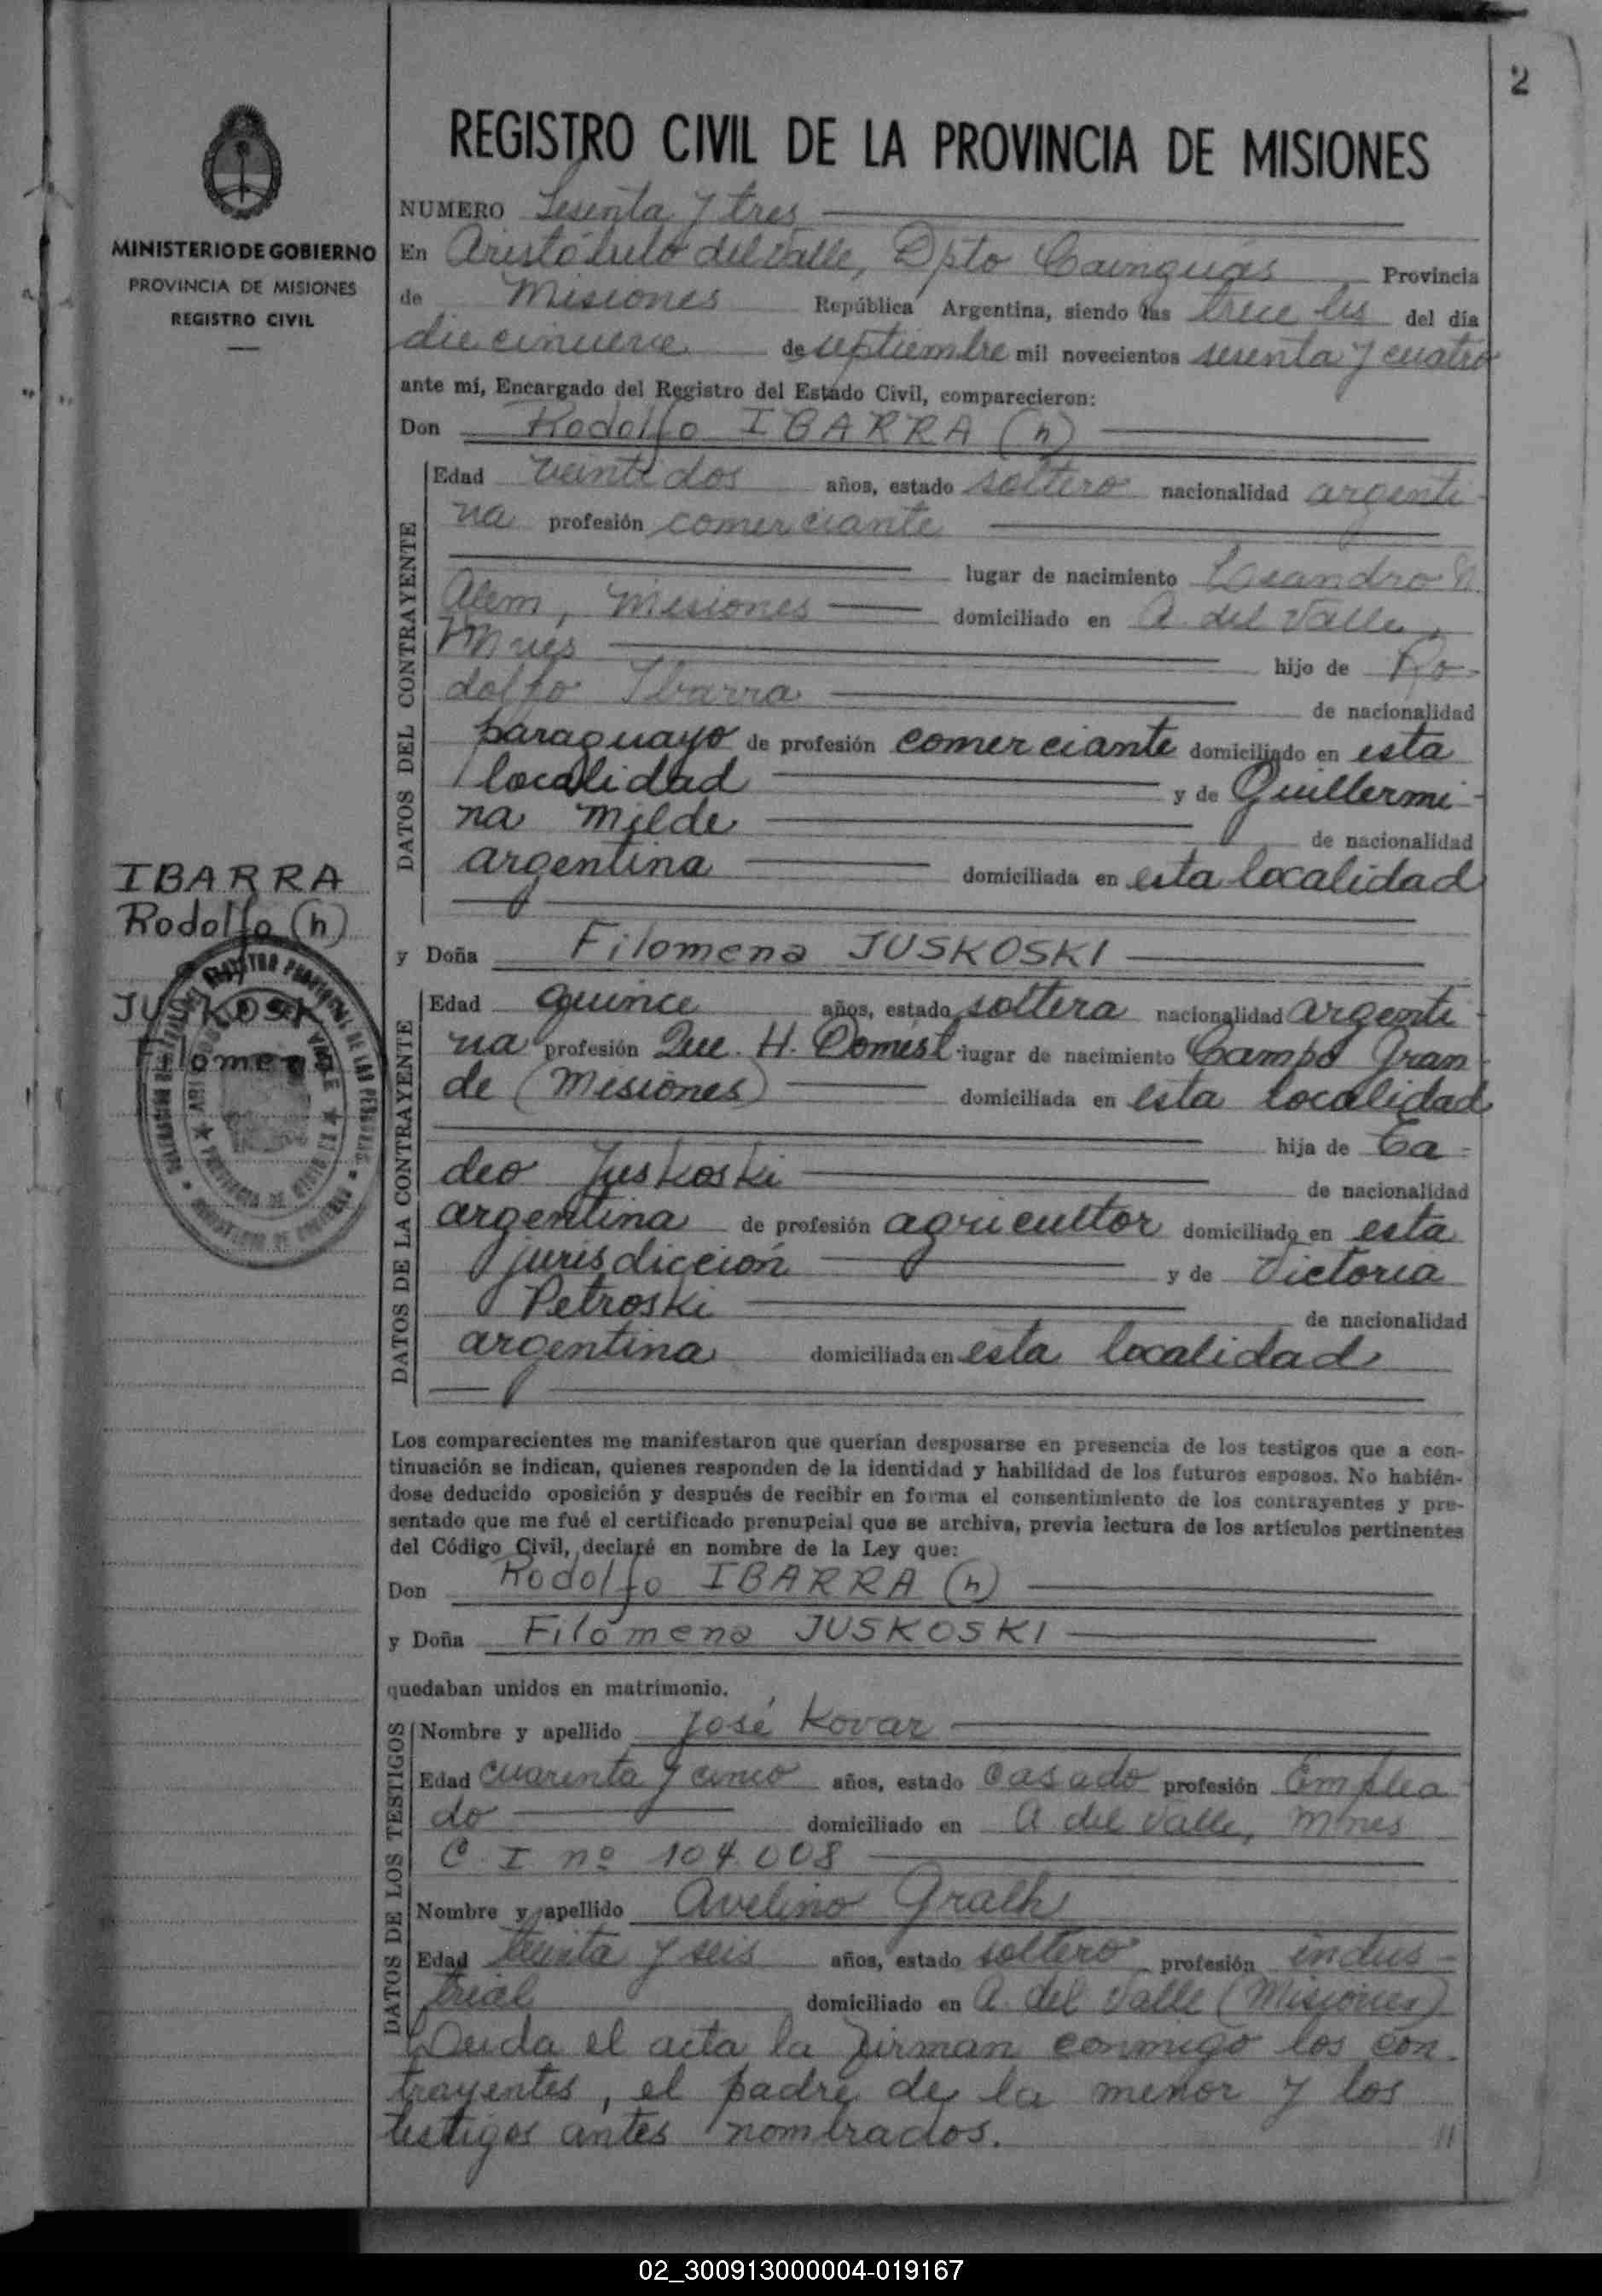 2
REGISTRO CIVIL DE LA PROVINCIA DE MISIONES
MINISTERIO DE GOBIERNO
PROVINCIA DE MISIONES
REGISTRO CIVIL
NUMERO Sesenta y tres
En Aristóbulo del Valle, Dpto Cainguás Provincia
de Misiones República Argentina, siendo las trece hs del día
diecinueve de septiembre mil novecientos sesenta y cuatro
ante mí, Encargado del Registro del Estado Civil, comparecieron:
Don Rodolfo IBARRA (h)
DATOS DEL CONTRAYENTE
Edad veintidos años, estado soltero nacionalidad argenti
na profesión comerciante
lugar de nacimiento Leandro N.
Alem, Misiones domiciliado en A. del Valle,
Mnes hijo de Ro-
dolfo Ibarra de nacionalidad
paraguayo de profesión comerciante domiciliado en esta
localidad y de Guillermi-
na Milde de nacionalidad
argentina domiciliada en esta localidad
IBARRA
Rodolfo (h)
y
JUSKOSKI
Filomena
y Doña Filomena JUSKOSKI
DATOS DE LA CONTRAYENTE
Edad quince años, estado soltera nacionalidad argenti
na profesión Que. H. Domést lugar de nacimiento Campo Gran
de (Misiones) domiciliada en esta localidad
hija de Ta-
deo Juskoski de nacionalidad
argentina de profesión agricultor domiciliado en esta
jurisdicción y de Victoria
Petroski de nacionalidad
argentina domiciliada en esta localidad
Los comparecientes me manifestaron que querían desposarse en presencia de los testigos que a con-
tinuación se indican, quienes responden de la identidad y habilidad de los futuros esposos. No habién-
dose deducido oposición y después de recibir en forma el consentimiento de los contrayentes y pre-
sentado que me fué el certificado prenupcial que se archiva, previa lectura de los artículos pertinentes
del Código Civil, declaré en nombre de la Ley que:
Don Rodolfo IBARRA (h)
y Doña Filomena JUSKOSKI
quedaban unidos en matrimonio.
DATOS DE LOS TESTIGOS
Nombre y apellido José Kovar
Edad cuarenta y cinco años, estado casado profesión Emplea
do domiciliado en A del Valle, Mnes
C. I nº 104.008
Nombre y apellido Avelino Gralh
Edad treinta y seis años, estado soltero profesión indus-
trial domiciliado en A. del Valle (Misiones)
Leida el acta la firman conmigo los con-
trayentes, el padre de la menor y los
testigos antes nombrados. //
02_300913000004-019167